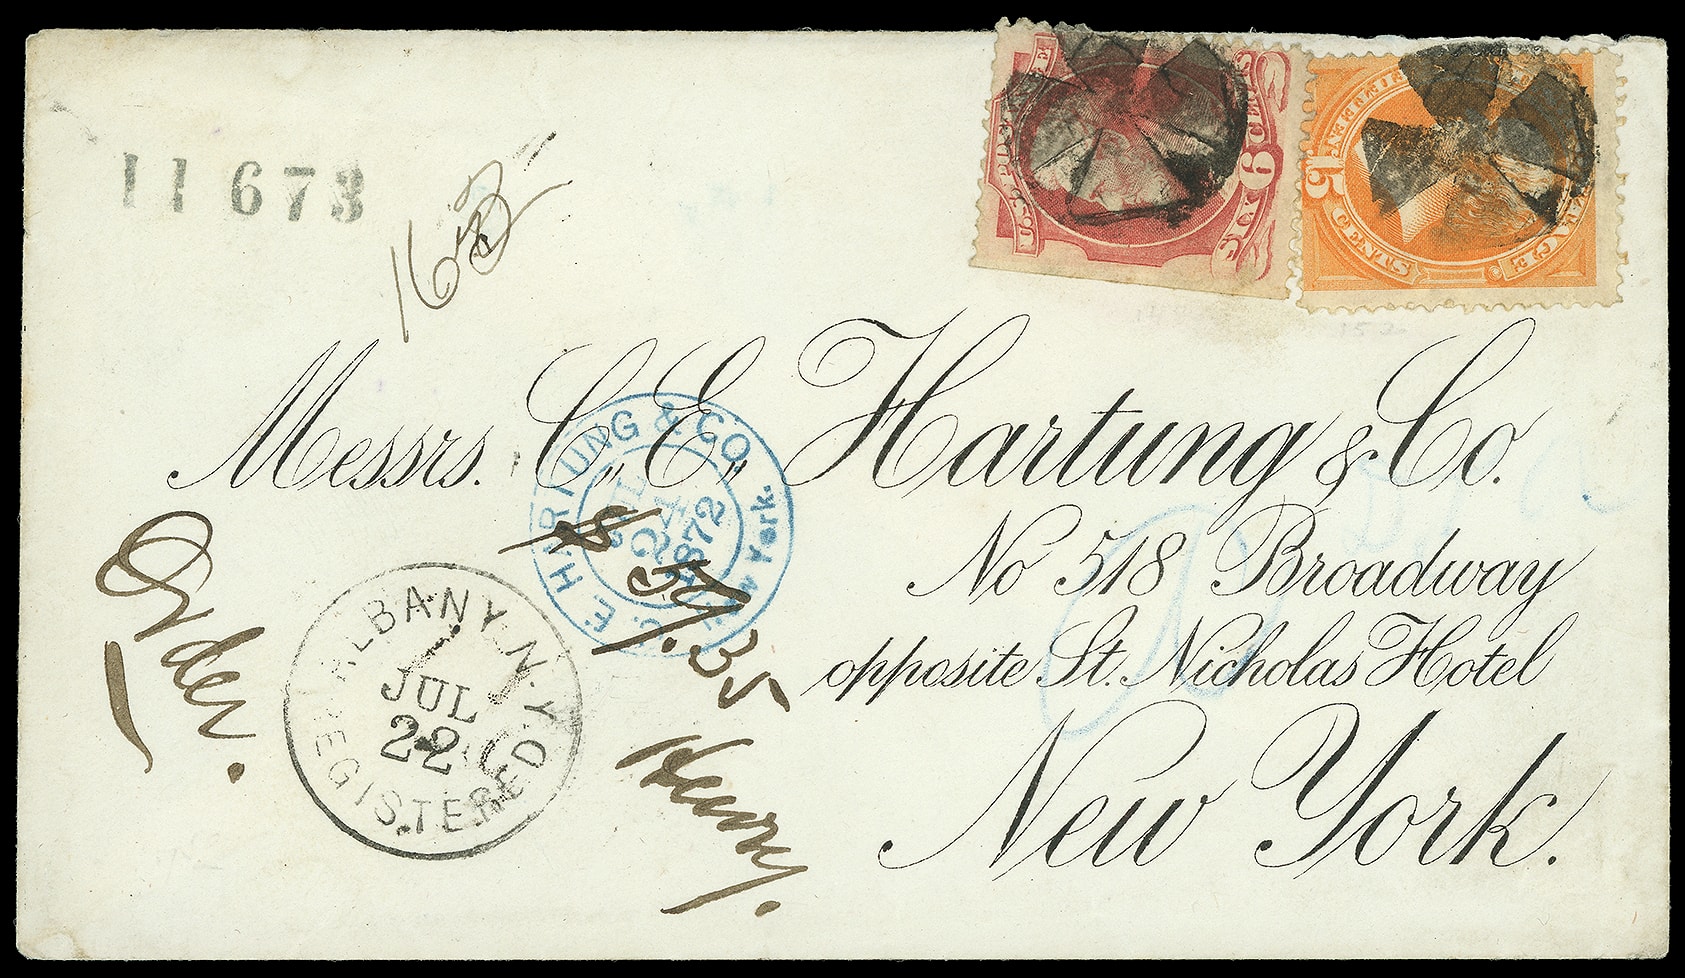 11 673
SIX 6 CENTS
U.S. POSTAGE
15 CENTS
Messrs. C. E. Hartung & Co.
No 518 Broadway
opposite St. Nicholas Hotel
New York.
C. E. HARTUNG & CO.
JUL
24
1872
New York.
ALBANY. N.Y.
JUL
22
REGISTERED
Order.
35
Henry.